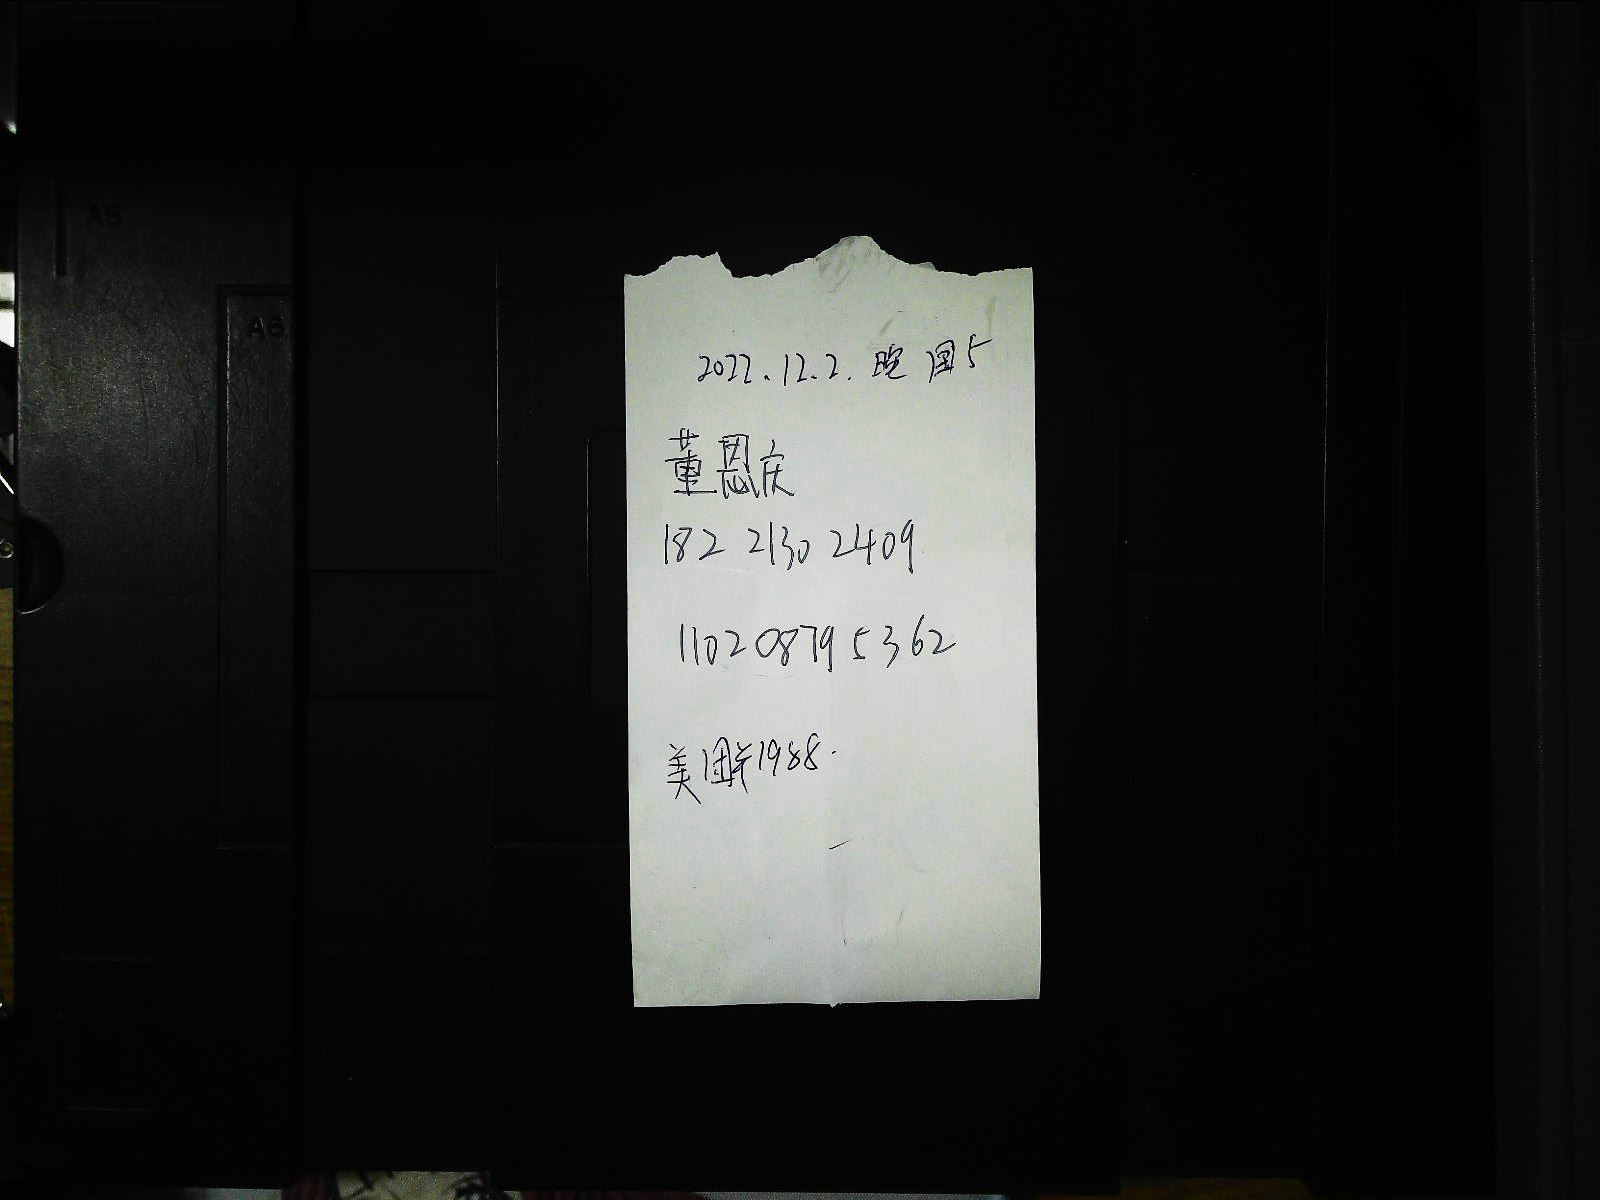 A5
A6
2022.12.2. 晚 国5
董恩庆
182 2130 2409
110208795362
美团券1988.